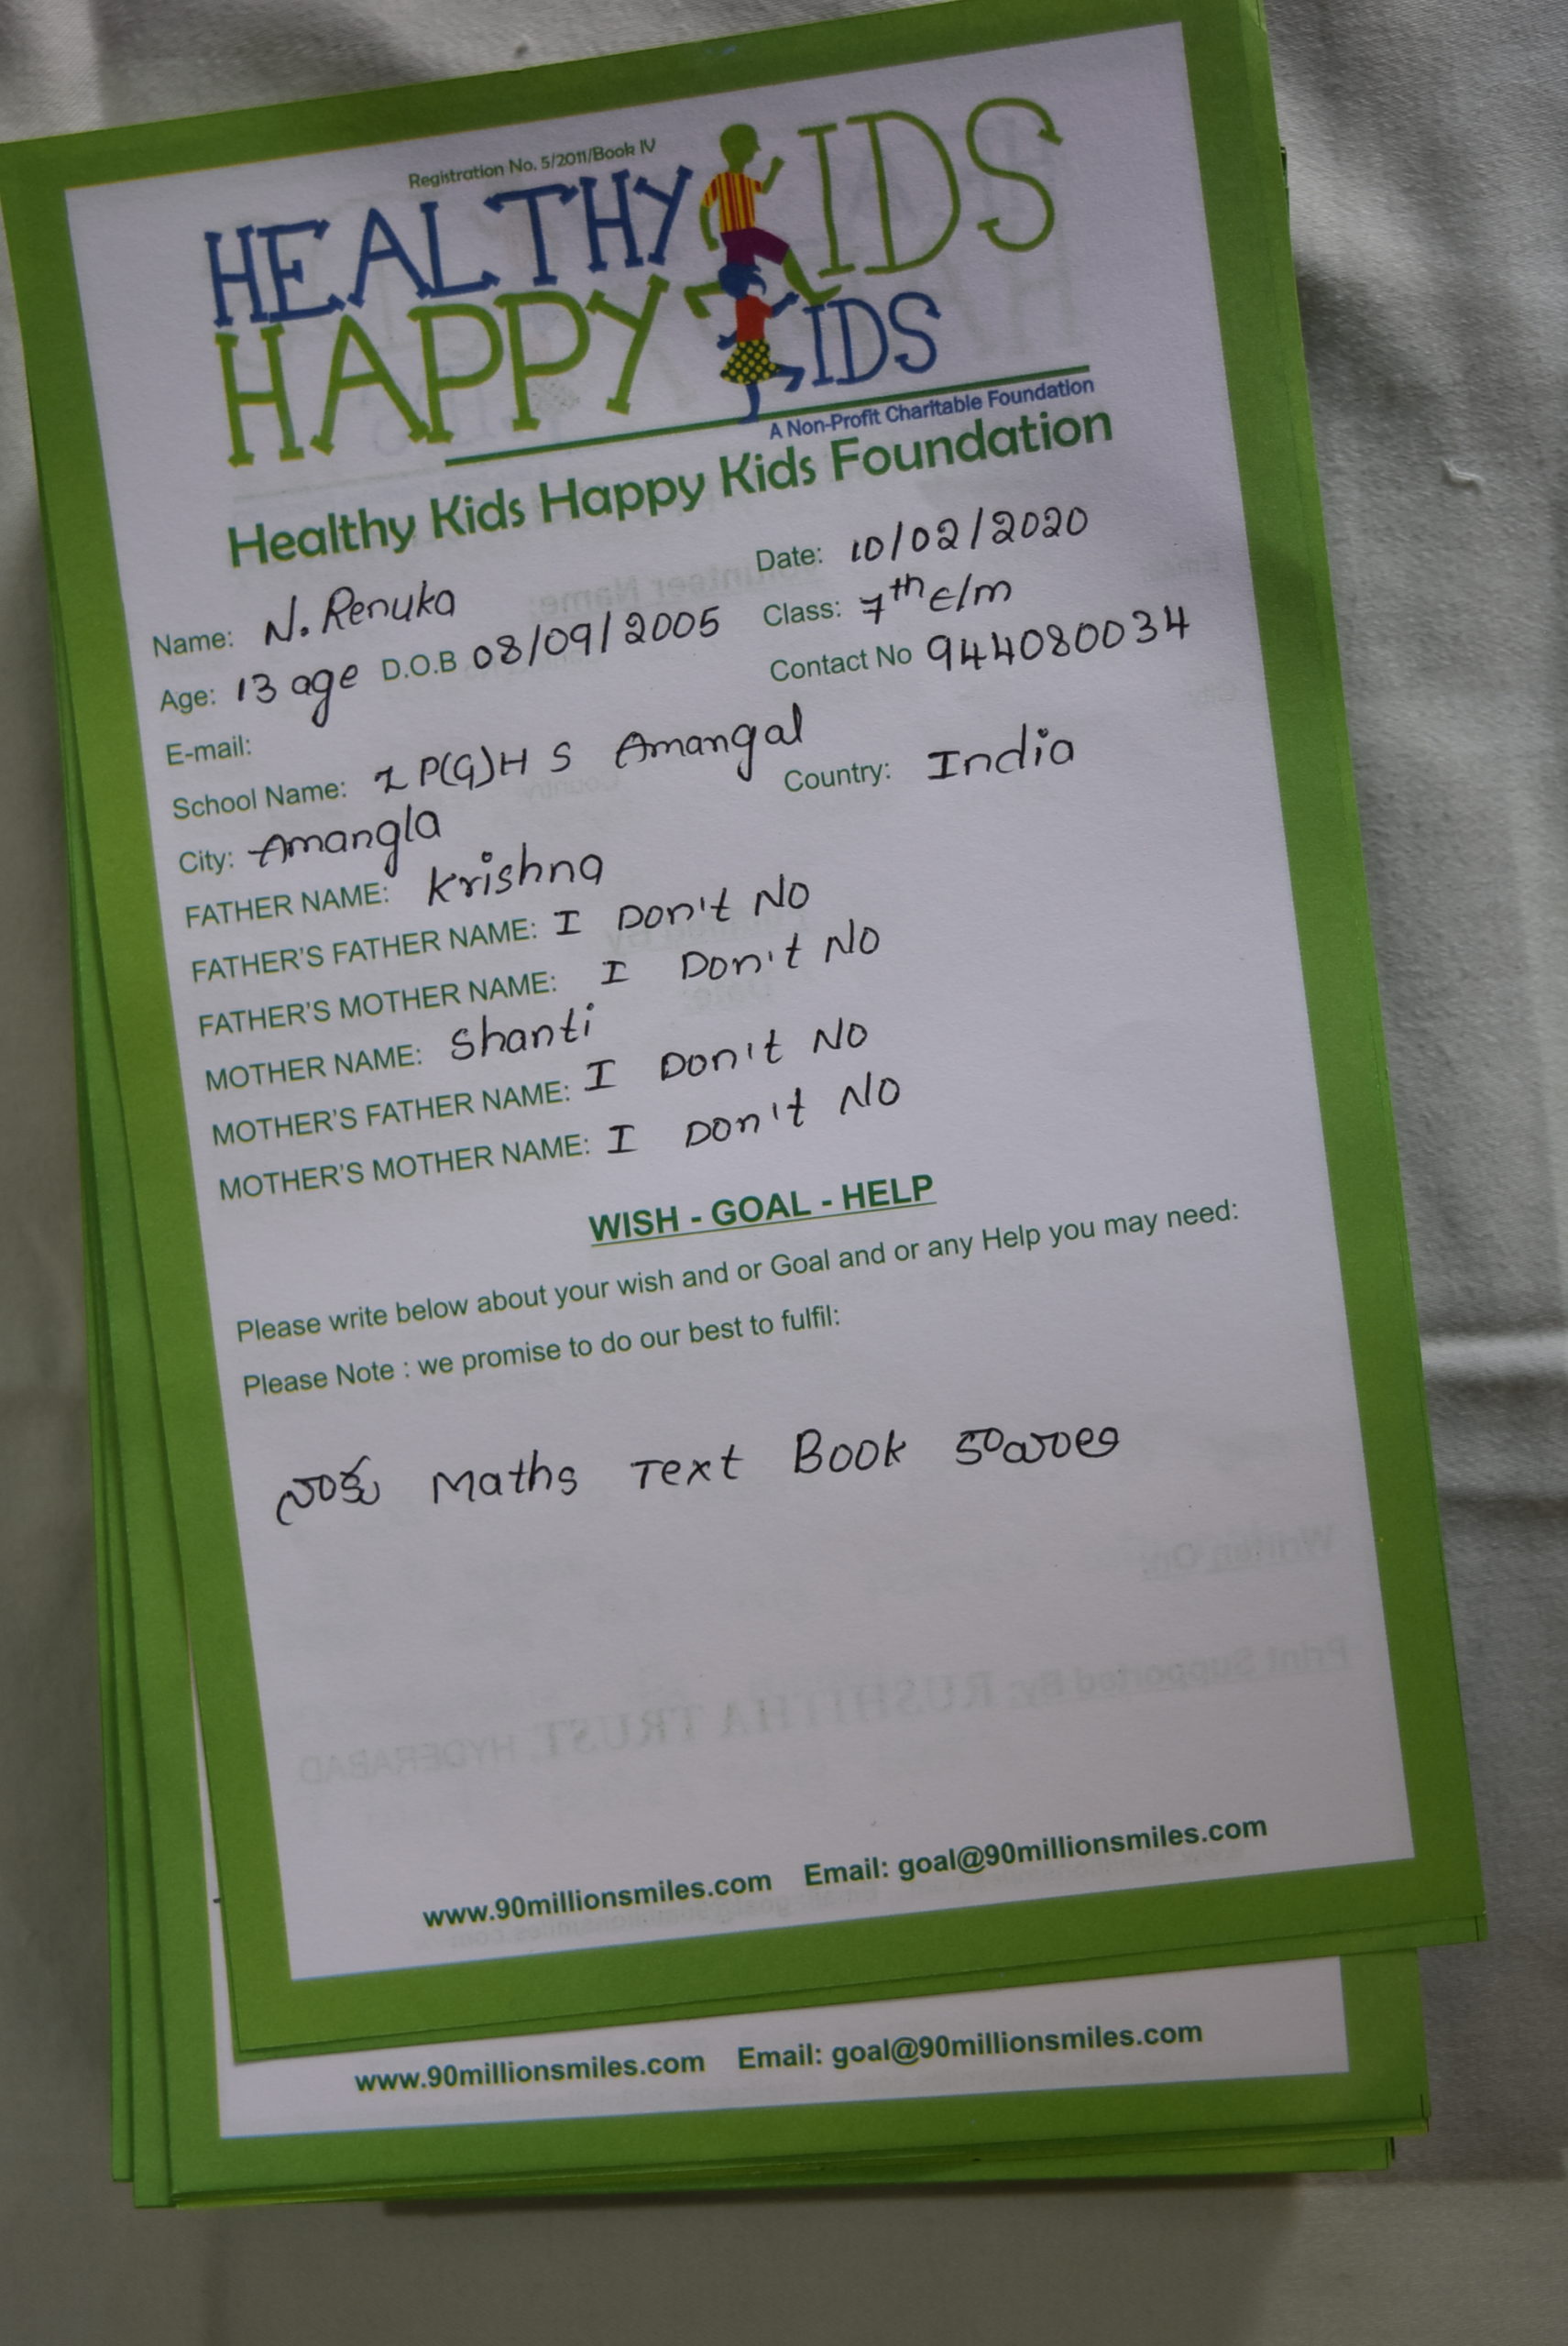 Registration No. 5/2011/Book IV
HEALTHY KIDS
HAPPY KIDS
A Non-Profit Charitable Foundation
Healthy Kids Happy Kids Foundation
Date: 10/02/2020
Name: N. Renuka
Class: 7th E/m
Age: 13 age D.O.B 08/09/2005
Contact No 944080034
E-mail:
School Name: Z P(G)H S Amangal
City: Amangla Country: India
FATHER NAME: Krishna
FATHER'S FATHER NAME: I Don't No
FATHER'S MOTHER NAME: I Don't No
MOTHER NAME: Shanti
MOTHER'S FATHER NAME: I Don't No
MOTHER'S MOTHER NAME: I Don't No
WISH - GOAL - HELP
Please write below about your wish and or Goal and or any Help you may need:
Please Note : we promise to do our best to fulfil:
నాకు Maths Text Book కావాలి
www.90millionsmiles.com Email: goal@90millionsmiles.com
www.90millionsmiles.com Email: goal@90millionsmiles.com